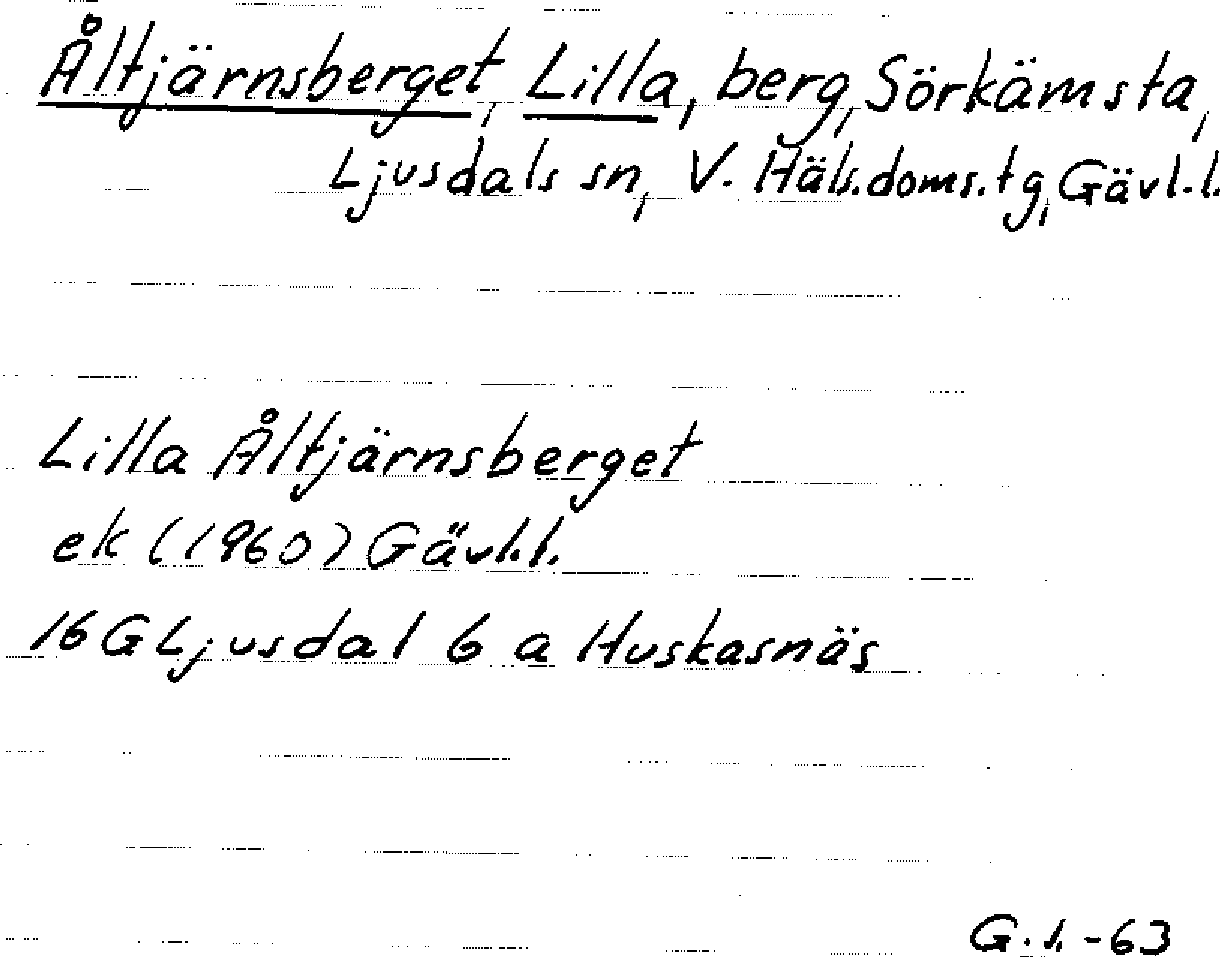 Åltjärnsberget, Lilla, berg, Sörkämsta,
Ljusdals sn, V. Häls.doms.tg, Gävl.l.
Lilla Åltjärnsberget
ek (1960) Gävl.l.
16 G Ljusdal 6 a Huskasnäs
G.l. -63